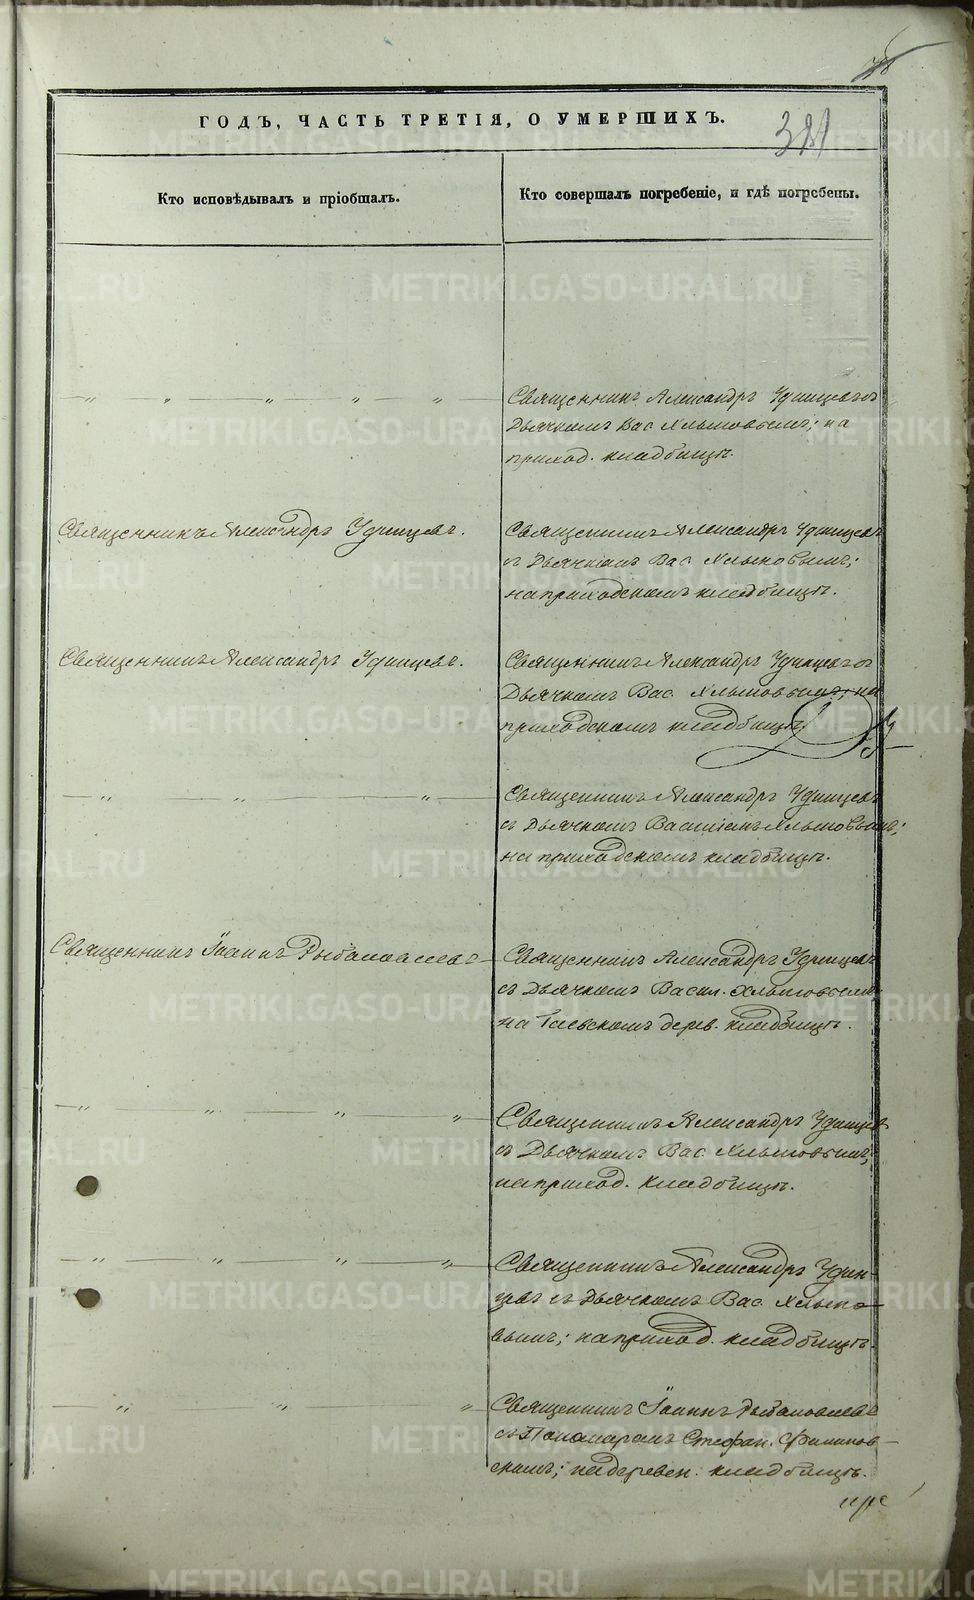 ГОДЪ, ЧАСТЬ ТРЕТІЯ, О УМЕРШИХЪ.
Кто исповѣдывалъ и пріобщалъ.
Кто совершалъ погребеніе, и гдѣ погребены.
Священникъ Александръ Удинцевъ съ
Дьячкомъ Вас. Хлыновымъ; на
приход. кладбищѣ.
Священникъ Александръ Удинцевъ.
Священникъ Александръ Удинцевъ
съ Дьячкомъ Вас. Хлыновымъ;
на приходскомъ кладбищѣ.
Священникъ Александръ Удинцевъ.
Священникъ Александръ Удинцевъ съ
Дьячкомъ Вас. Хлыновымъ; на
приходскомъ кладбищѣ.
Священникъ Александръ Удинцевъ
съ Дьячкомъ Василіемъ Хлыновымъ;
на приходскомъ кладбищѣ.
Священникъ Іоаннъ
Священникъ Александръ Удинцевъ
съ Дьячкомъ Васил. Хлыновымъ
на дерев. кладбищѣ.
Священникъ Александръ Удинцев
съ Дьячкомъ Вас. Хлыновымъ;
на приход. кладбищѣ.
Священникъ Александръ Удин-
цевъ съ Дьячкомъ Вас. Хлыно-
вымъ; на приход. кладбищѣ.
Священникъ Іоаннъ
съ Пономаремъ Стефан.
на деревен. кладбищѣ.
METRIKI.GASO-URAL.RU